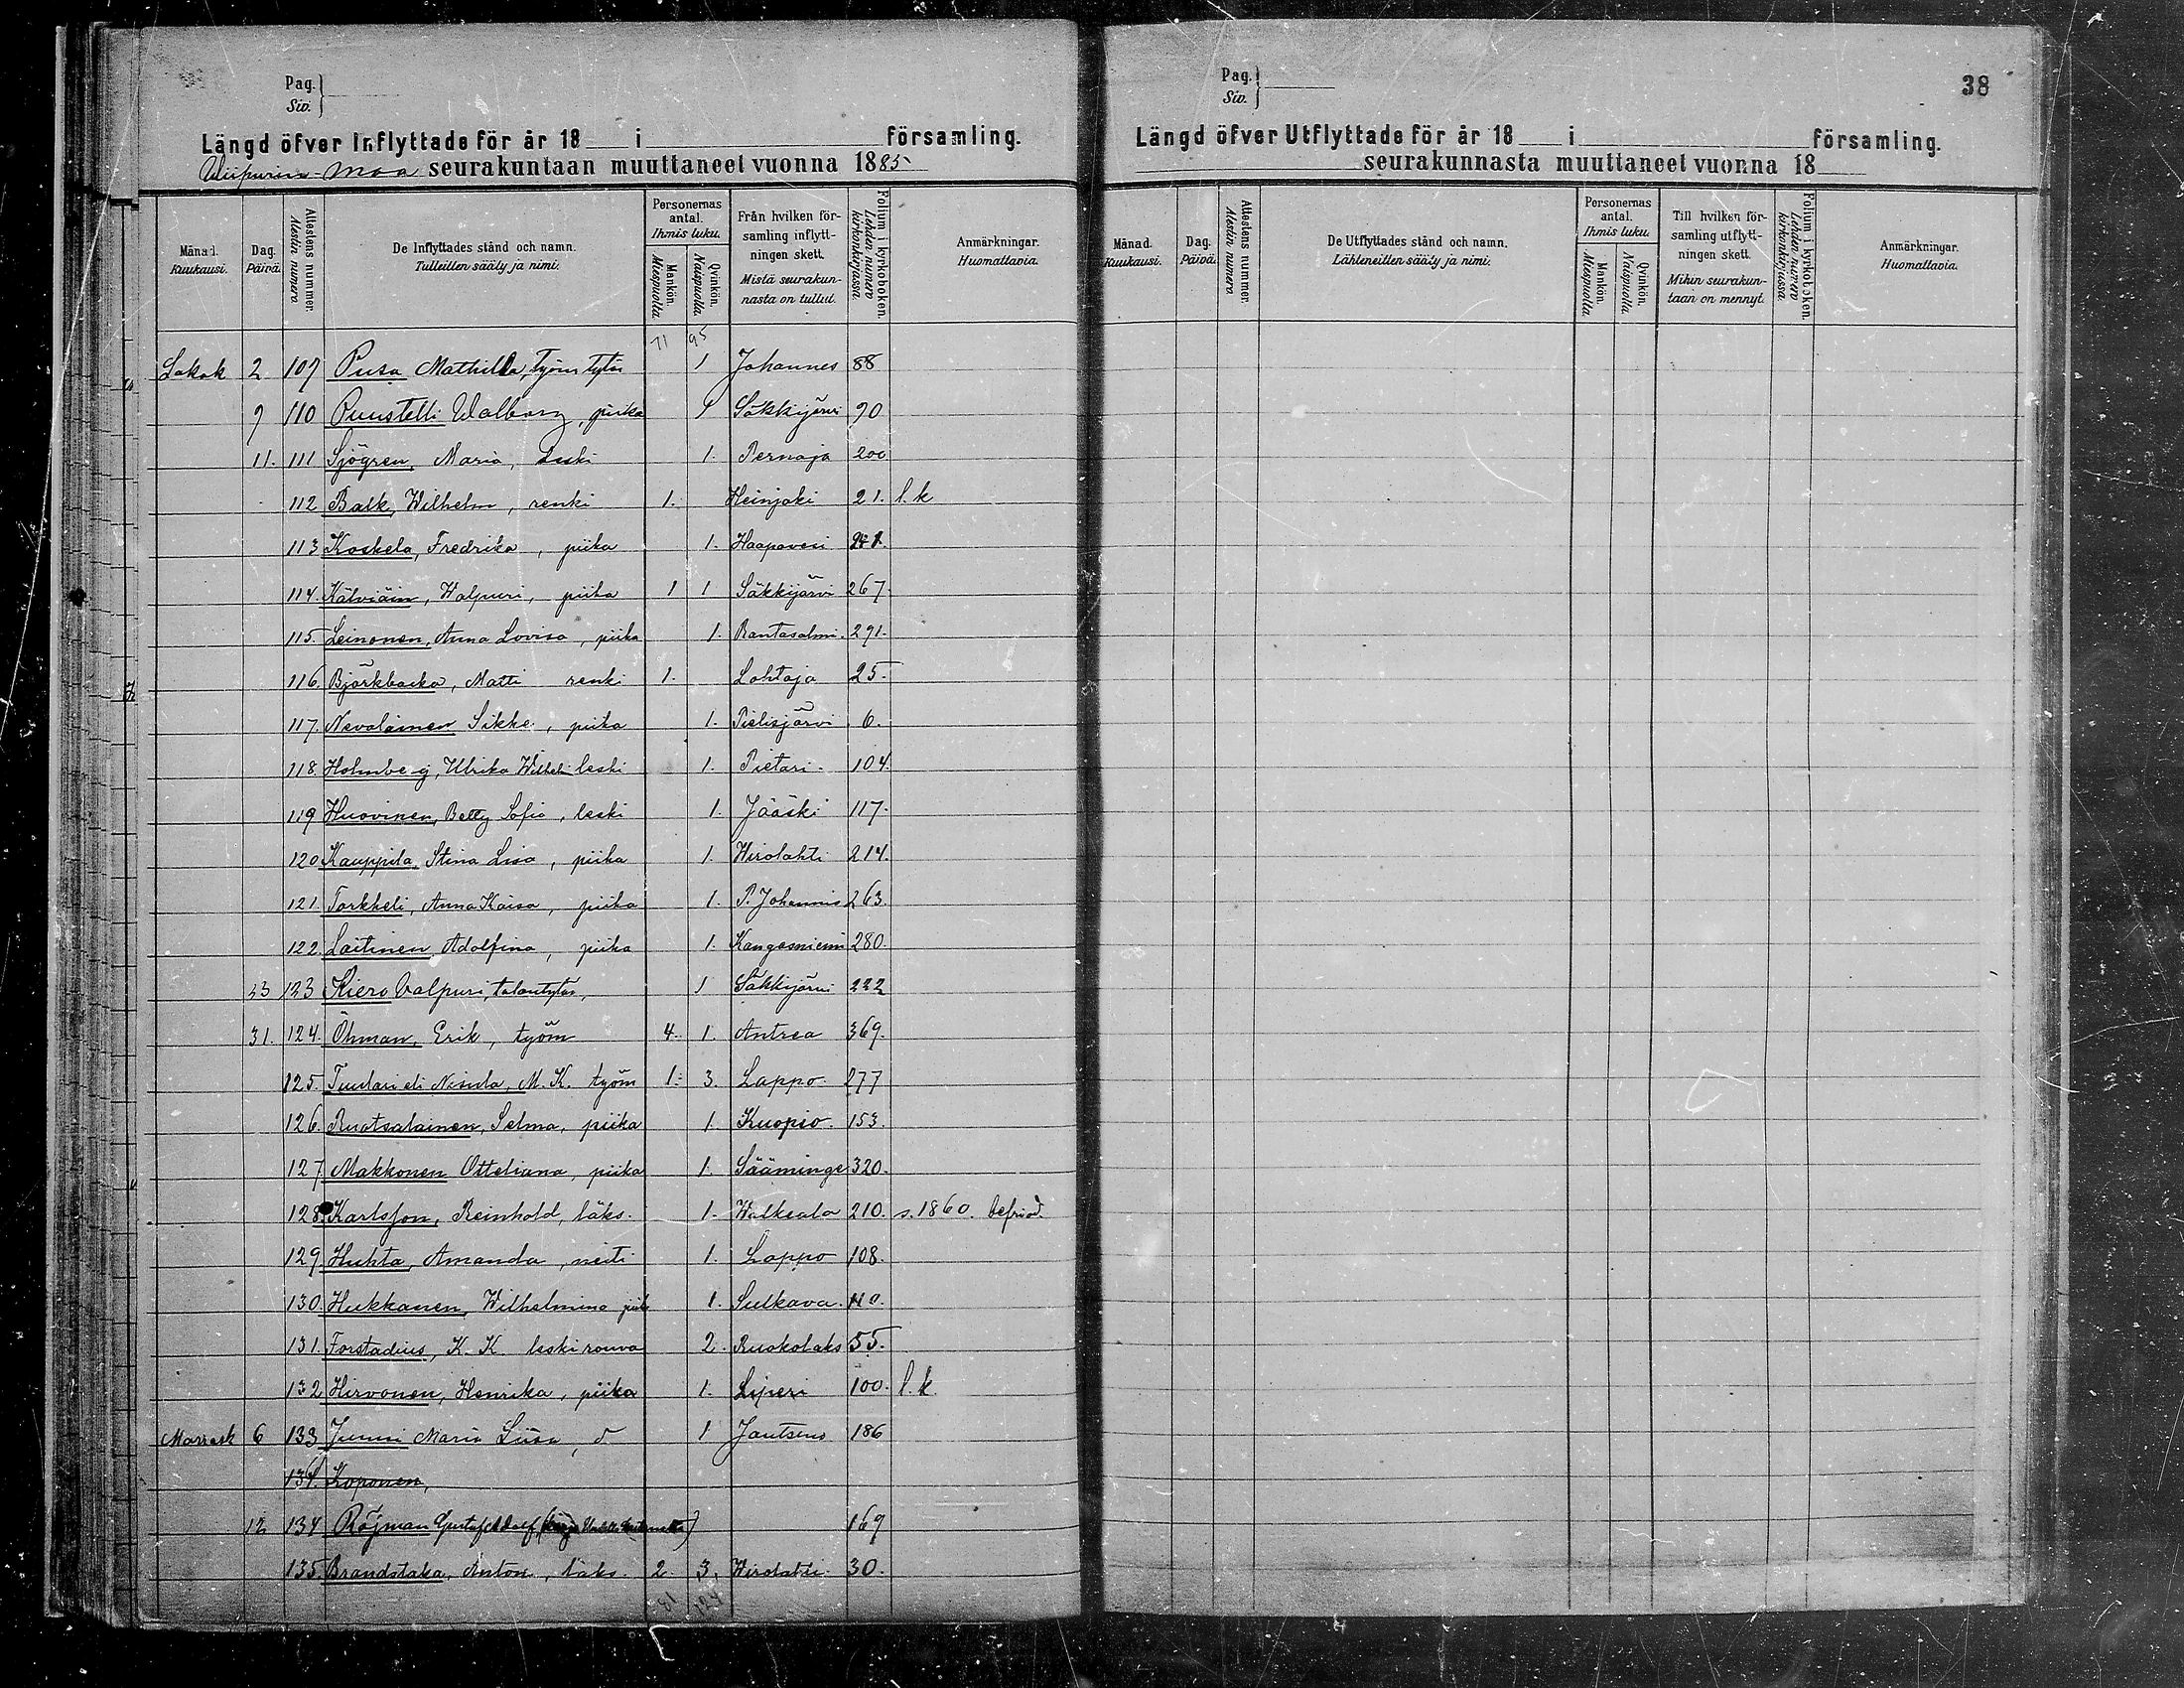 Pag.
Siv.
Längd öfver Inflyttade för år 18 i församling.
Wiipurin maa seurakuntaan muuttaneet vuonna 1885
Månad. Kuukausi.
Dag. Päivä.
Attestens nummer. Alestin numero
De Inflyttades stånd och namn.
Tulleitten sääty ja nimi.
Personernas antal.
Ihmis luku.
Mankön. Miespuolta
Qvinkön. Naispuolta.
Från hvilken församling inflyttningen skett.
Mistä seurakunnasta on tullut.
Folium i kyrkoboken. Lehden numero kirkonkirjassa.
Anmärkningar.
Huomattavia.
71 95
Lokak 2 107 Pusa Mathilda, työm tytär 1 Johannes 88
9 110 Puustelli Walborg, piika 1 Säkkijärvi 90
11. 111 Sjögren, Maria, Leski 1. Pernaja 200
112 Balk, Wilhelm, renki 1. Heinjoki 21. l.k
113 Koskela, Fredrika, piika 1. Haapavesi
114. Kälviäin, Walpuri, piika 1 1 Säkkijärvi 267.
115. Leinonen, Anna Lovisa, piika 1. Rantasalmi. 291.
116. Björkbacka, Matti renki 1. Lohtaja 25.
117. Nevalainen Sikke, piika 1. Pielisjärvi 6.
118. Holmberg, Ulrika Wilhelm leski 1. Pietari. 104.
119 Huovinen, Betty Sofia, leski 1. Jääski 117.
120 Kauppila, Stina Lisa, piika 1. Wirolahti 214.
121. Torkkeli, Anna Kaisa, piika 1. P. Johannis 263.
122. Laitinen, Adolfina, piika 1. Kangasniemi 280.
23 123 Kiero Valpuri, talontytär, 1 Säkkijärvi 222
31. 124. Öhman, Erik, työm 4. 1. Antrea 369.
125. Tuulari eli Nisula, M. K. työm 1. 3. Lappo 277
126. Ruotsalainen, Selma, piika 1. Kuopio. 153.
127 Makkonen Otteliana, piika 1. Sääminge 320.
128. Karlsson, Reinhold, läks. 1. Walkeala 210. s. 1860. befriad.
129 Huhta, Amanda, neiti 1. Lappo 108.
130. Hukkanen, Wilhelmina piik 1. Sulkava. 110.
131. Forstadius, K. K. leski rouva 2. Ruokolaks 55.
132 Hirvonen, Henrika, piika 1. Liperi 100. l. k.
Marrask 6 133 Jummi Maria Liisa, d 1 Jautsens 186
134. Koponen,
12 134 Röjman Gustaf Adolf 169
135. Brandstaka, Anton, läks. 2. 3. Wirolahti. 30.
81 124
Pag.
Siv.
38
Längd öfver Utflyttade för år 18 i församling.
seurakunnasta muuttaneet vuonna 18
Månad. Kuukausi.
Dag. Päivä.
Attestens nummer. Alestin numero
De Utflyttades stånd och namn.
Lähteneitten sääty ja nimi.
Personernas antal.
Ihmis luku.
Mankön. Miespuolta
Qvinkön. Naispuolta
Till hvilken församling utflyttningen skett.
Mihin seurakuntaan on mennyt.
Folium i kyrkoboken. Lehden numero kirkonkirjassa.
Anmärkningar.
Huomattavia.